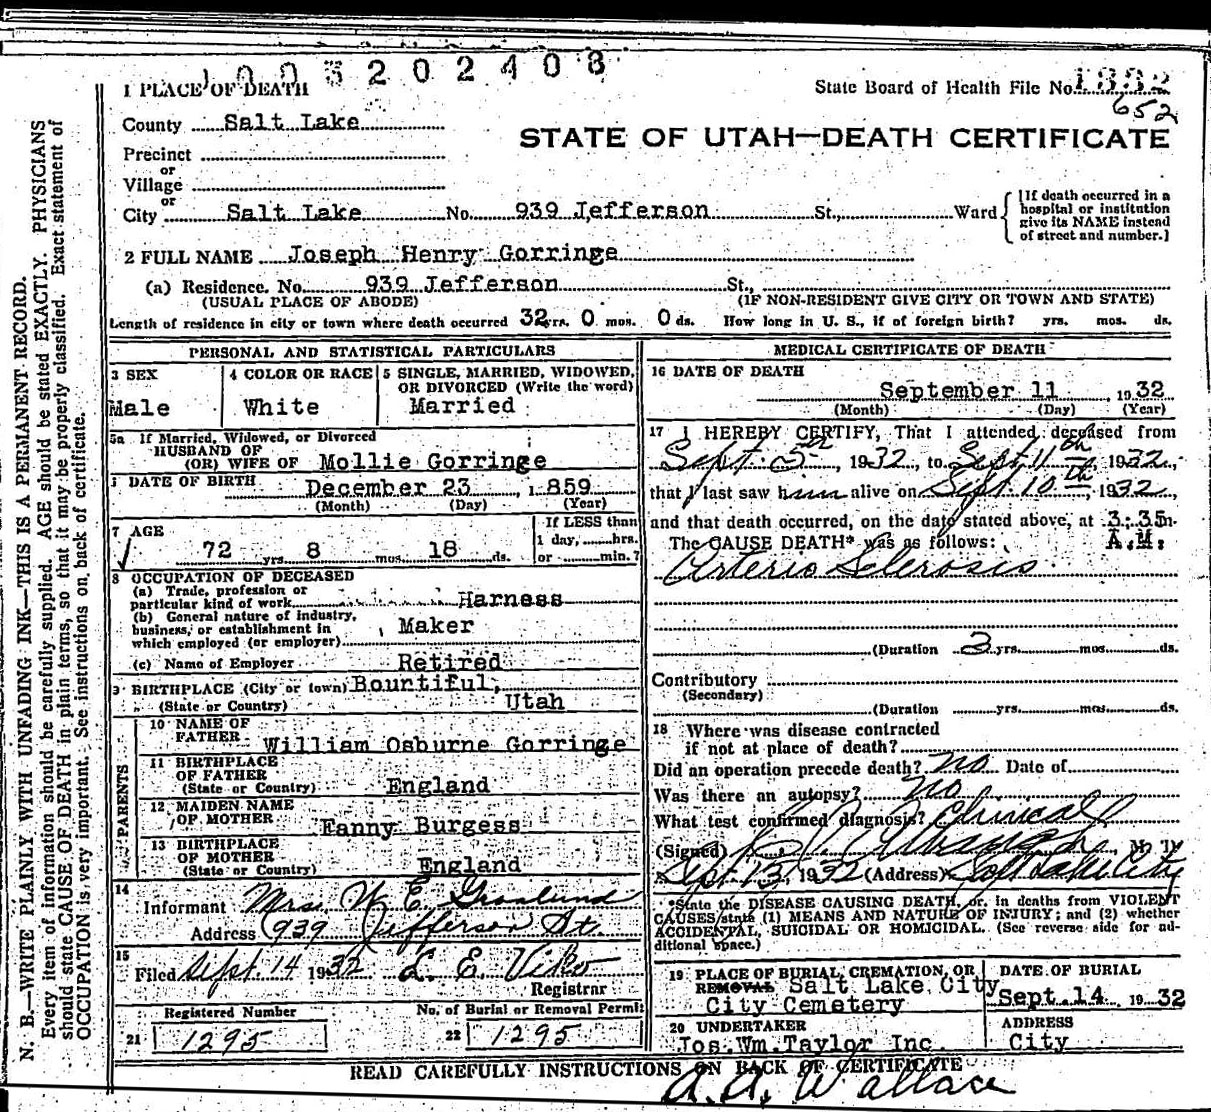 1003202408
1 PLACE OF DEATH
State Board of Health File No. 1882
652
County Salt Lake
STATE OF UTAH—DEATH CERTIFICATE
Precinct
or
Village
or
City Salt Lake No. 939 Jefferson St., Ward
[If death occurred in a hospital or institution give its NAME instead of street and number.]
2 FULL NAME Joseph Henry Gorringe
(a) Residence. No. 939 Jefferson St.,
(USUAL PLACE OF ABODE) (IF NON-RESIDENT GIVE CITY OR TOWN AND STATE)
Length of residence in city or town where death occurred 32 yrs. 0 mos. 0 ds. How long in U. S., if of foreign birth? yrs. mos. ds.
PERSONAL AND STATISTICAL PARTICULARS
3 SEX
Male
4 COLOR OR RACE
White
5 SINGLE, MARRIED, WIDOWED,
OR DIVORCED (Write the word)
Married
5a If Married, Widowed, or Divorced
HUSBAND OF
(OR) WIFE OF Mollie Gorringe
DATE OF BIRTH December 23, 1859
(Month) (Day) (Year)
7 AGE
72 yrs 8 mos. 18 ds.
If LESS than
1 day, hrs.
or min.?
8 OCCUPATION OF DECEASED
(a) Trade, profession or
particular kind of work Harness
(b) General nature of industry,
business, or establishment in
which employed (or employer)
Maker
(c) Name of Employer Retired
9 BIRTHPLACE (City or town) Bountiful,
(State or Country) Utah
PARENTS
10 NAME OF
FATHER William Osburne Gorringe
11 BIRTHPLACE
OF FATHER
(State or Country) England
12 MAIDEN NAME
OF MOTHER Fanny Burgess
13 BIRTHPLACE
OF MOTHER
(State or Country) England
14
Informant Mrs. W E
Address 939 Jefferson St.
15
Filed Sept. 14 1932 L. E. Viko
Registrar
Registered Number
21 1295
No. of Burial or Removal Permit
22 1295
MEDICAL CERTIFICATE OF DEATH
16 DATE OF DEATH
September 11, 1932
(Month) (Day) (Year)
17 I HEREBY CERTIFY, That I attended deceased from
Sept. 5th, 1932, to Sept 11th, 1932,
that I last saw him alive on Sept. 10th, 1932
and that death occurred, on the date stated above, at 3:35 m.
The CAUSE DEATH* was as follows: A.M.
Arterio Sclerosis
(Duration 3 yrs. mos. ds.
Contributory
(Secondary)
(Duration yrs. mos. ds.
18 Where was disease contracted
if not at place of death?
Did an operation precede death? no Date of
Was there an autopsy? no
What test confirmed diagnosis? Clinical
(Signed) M. D.
Sept. 13, 1932 (Address) Salt Lake City
*State the DISEASE CAUSING DEATH, or, in deaths from VIOLENT
CAUSES, state (1) MEANS AND NATURE OF INJURY; and (2) whether
ACCIDENTAL, SUICIDAL OR HOMICIDAL. (See reverse side for ad-
ditional space.)
19 PLACE OF BURIAL, CREMATION, OR
REMOVAL Salt Lake City
City Cemetery
DATE OF BURIAL
Sept. 14 1932
20 UNDERTAKER
Jos. Wm. Taylor Inc.
ADDRESS
City
READ CAREFULLY INSTRUCTIONS ON BACK OF CERTIFICATE
A. A. Wallace
N. B.—WRITE PLAINLY WITH UNFADING INK—THIS IS A PERMANENT RECORD.
Every item of information should be carefully supplied. AGE should be stated EXACTLY. PHYSICIANS
should state CAUSE OF DEATH in plain terms, so that it may be properly classified. Exact statement of
OCCUPATION is very important. See instructions on back of certificate.